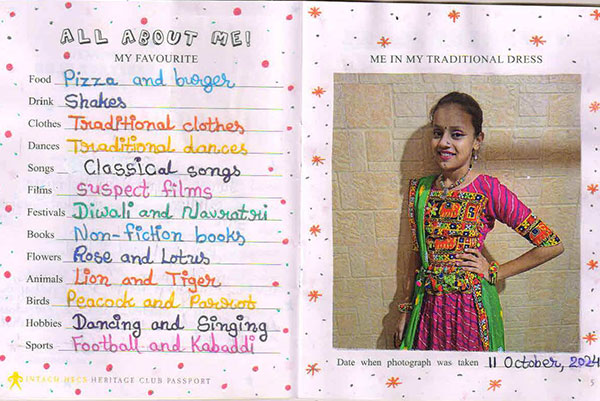 ALL ABOUT ME!
MY FAVOURITE
Food Pizza and burger
Drink Shakes
Clothes Traditional clothes
Dances Traditional dances
Songs Classical songs
Films suspect films
Festivals Diwali and Navratri
Books Non-fiction books
Flowers Rose and Lotus
Animals Lion and Tiger
Birds Peacock and Parrot
Hobbies Dancing and Singing
Sports Football and Kabaddi
INTACH HECS HERITAGE CLUB PASSPORT
ME IN MY TRADITIONAL DRESS
Date when photograph was taken 11 October, 2024
5